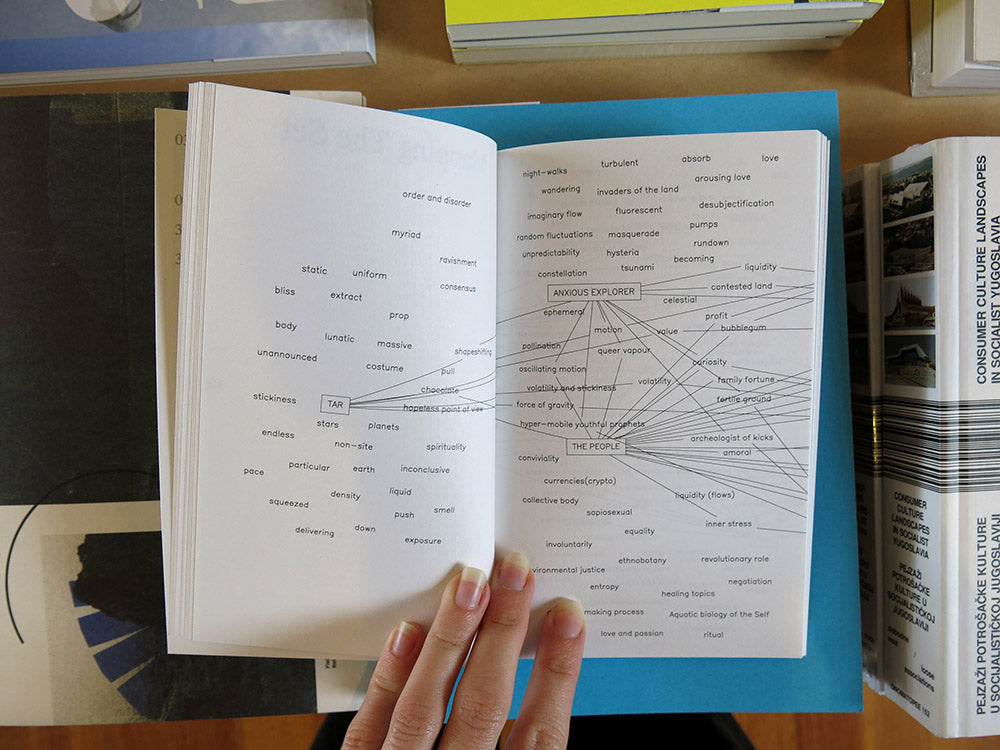 order and disorder
myriad
ravishment
static
uniform
consensus
bliss
extract
prop
body
lunatic
massive
shapeshifting
unannounced
costume
pull
chocolate
stickiness
TAR
hopeless point of view
stars
planets
endless
non-site
spirituality
pace
particular
earth
inconclusive
squeezed
density
liquid
push
smell
delivering
down
exposure
night-walks
turbulent
absorb
love
wandering
invaders of the land
arousing love
imaginary flow
fluorescent
desubjectification
random fluctuations
masquerade
pumps
unpredictability
hysteria
rundown
constellation
tsunami
becoming
liquidity
ANXIOUS EXPLORER
contested land
celestial
ephemeral
motion
value
profit
bubblegum
pollination
queer vapour
curiosity
oscillating motion
volatility and stickiness
volatility
family fortune
force of gravity
fertile ground
hyper-mobile youthful prophets
THE PEOPLE
archeologist of kicks
amoral
conviviality
currencies(crypto)
collective body
liquidity (flows)
sapiosexual
equality
inner stress
involuntarily
ethnobotany
revolutionary role
environmental justice
entropy
negotiation
healing topics
making process
Aquatic biology of the Self
love and passion
ritual
Mapping The Se
CONSUMER CULTURE LANDSCAPES
IN SOCIALIST YUGOSLAVIA
PEJZAŽI POTROŠAČKE KULTURE
U SOCIJALISTIČKOJ JUGOSLAVIJI
CONSUMER
CULTURE
LANDSCAPES
IN SOCIALIST
YUGOSLAVIA
PEJZAŽI
POTROŠAČKE
KULTURE U
SOCIJALISTIČKOJ
JUGOSLAVIJI
slobodne
veze
loose
associations
ONOMATOPEE 152